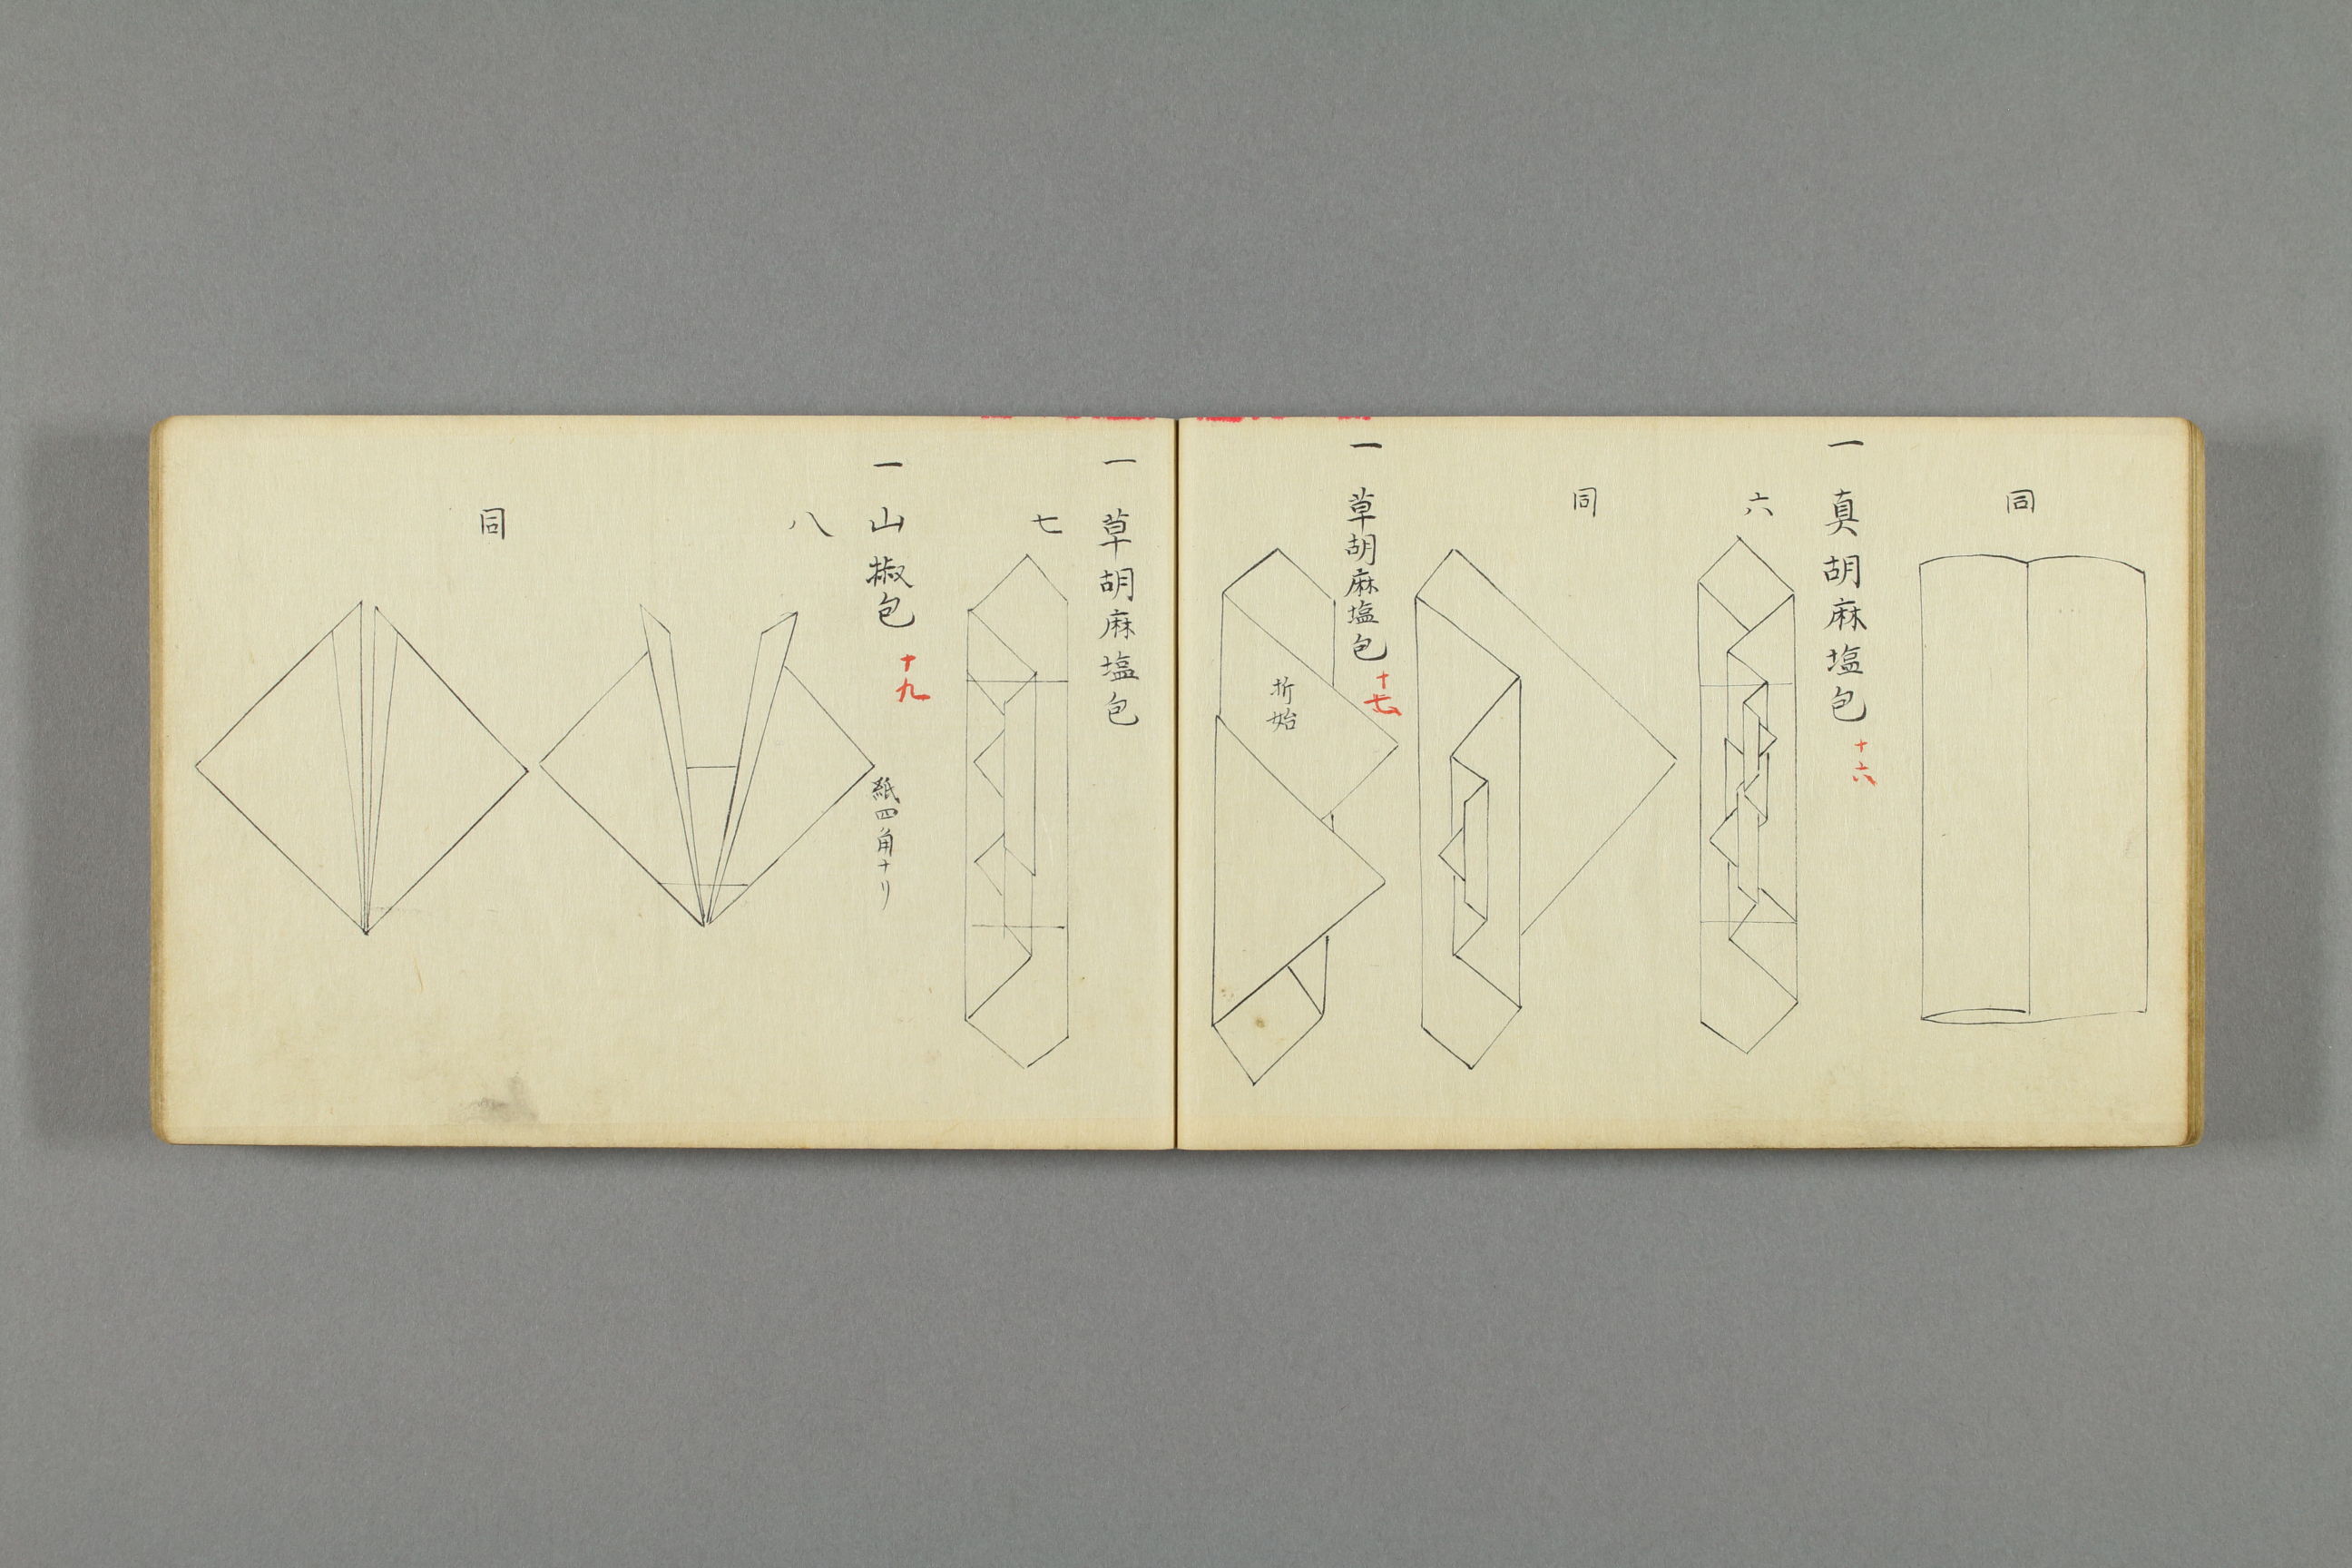 同
一 真胡麻塩包 十六
六
同
一 草胡麻塩包 十七
折始
一 草胡麻塩包
七
一 山椒包 十九
紙四角ナリ
八
同